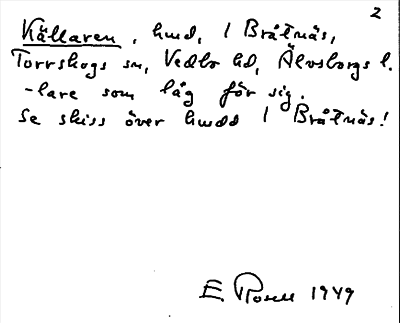 2
Källaren, hmd, 1 Bråtnäs,
Torrskogs sn, Vedbo hd, Älvsborgs l.
-lare som låg för sig.
Se skiss över hmdd 1 Bråtnäs!
E Rosell 1949